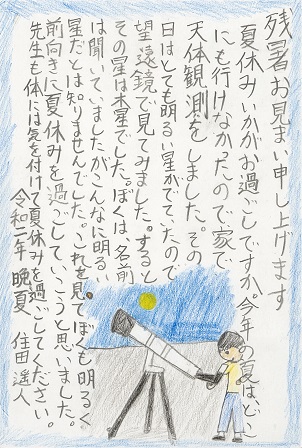 残暑お見まい申し上げます
夏休みいかがお過ごしですか。今年の夏は、どこ
にも行けなかったので家で
天体観測をしました。その
日はとても明るい星がでていたので
望遠鏡で見てみました。すると
その星は木星でした。ぼくは名前
は聞いていましたがこんなに明るい
星だとは知りませんでした。これを見てぼくも明るく
前向きに夏休みを過ごしていこうと思いました。
先生も体には気を付けて夏休みを過ごしてください。
令和二年 晩夏 住田遥人